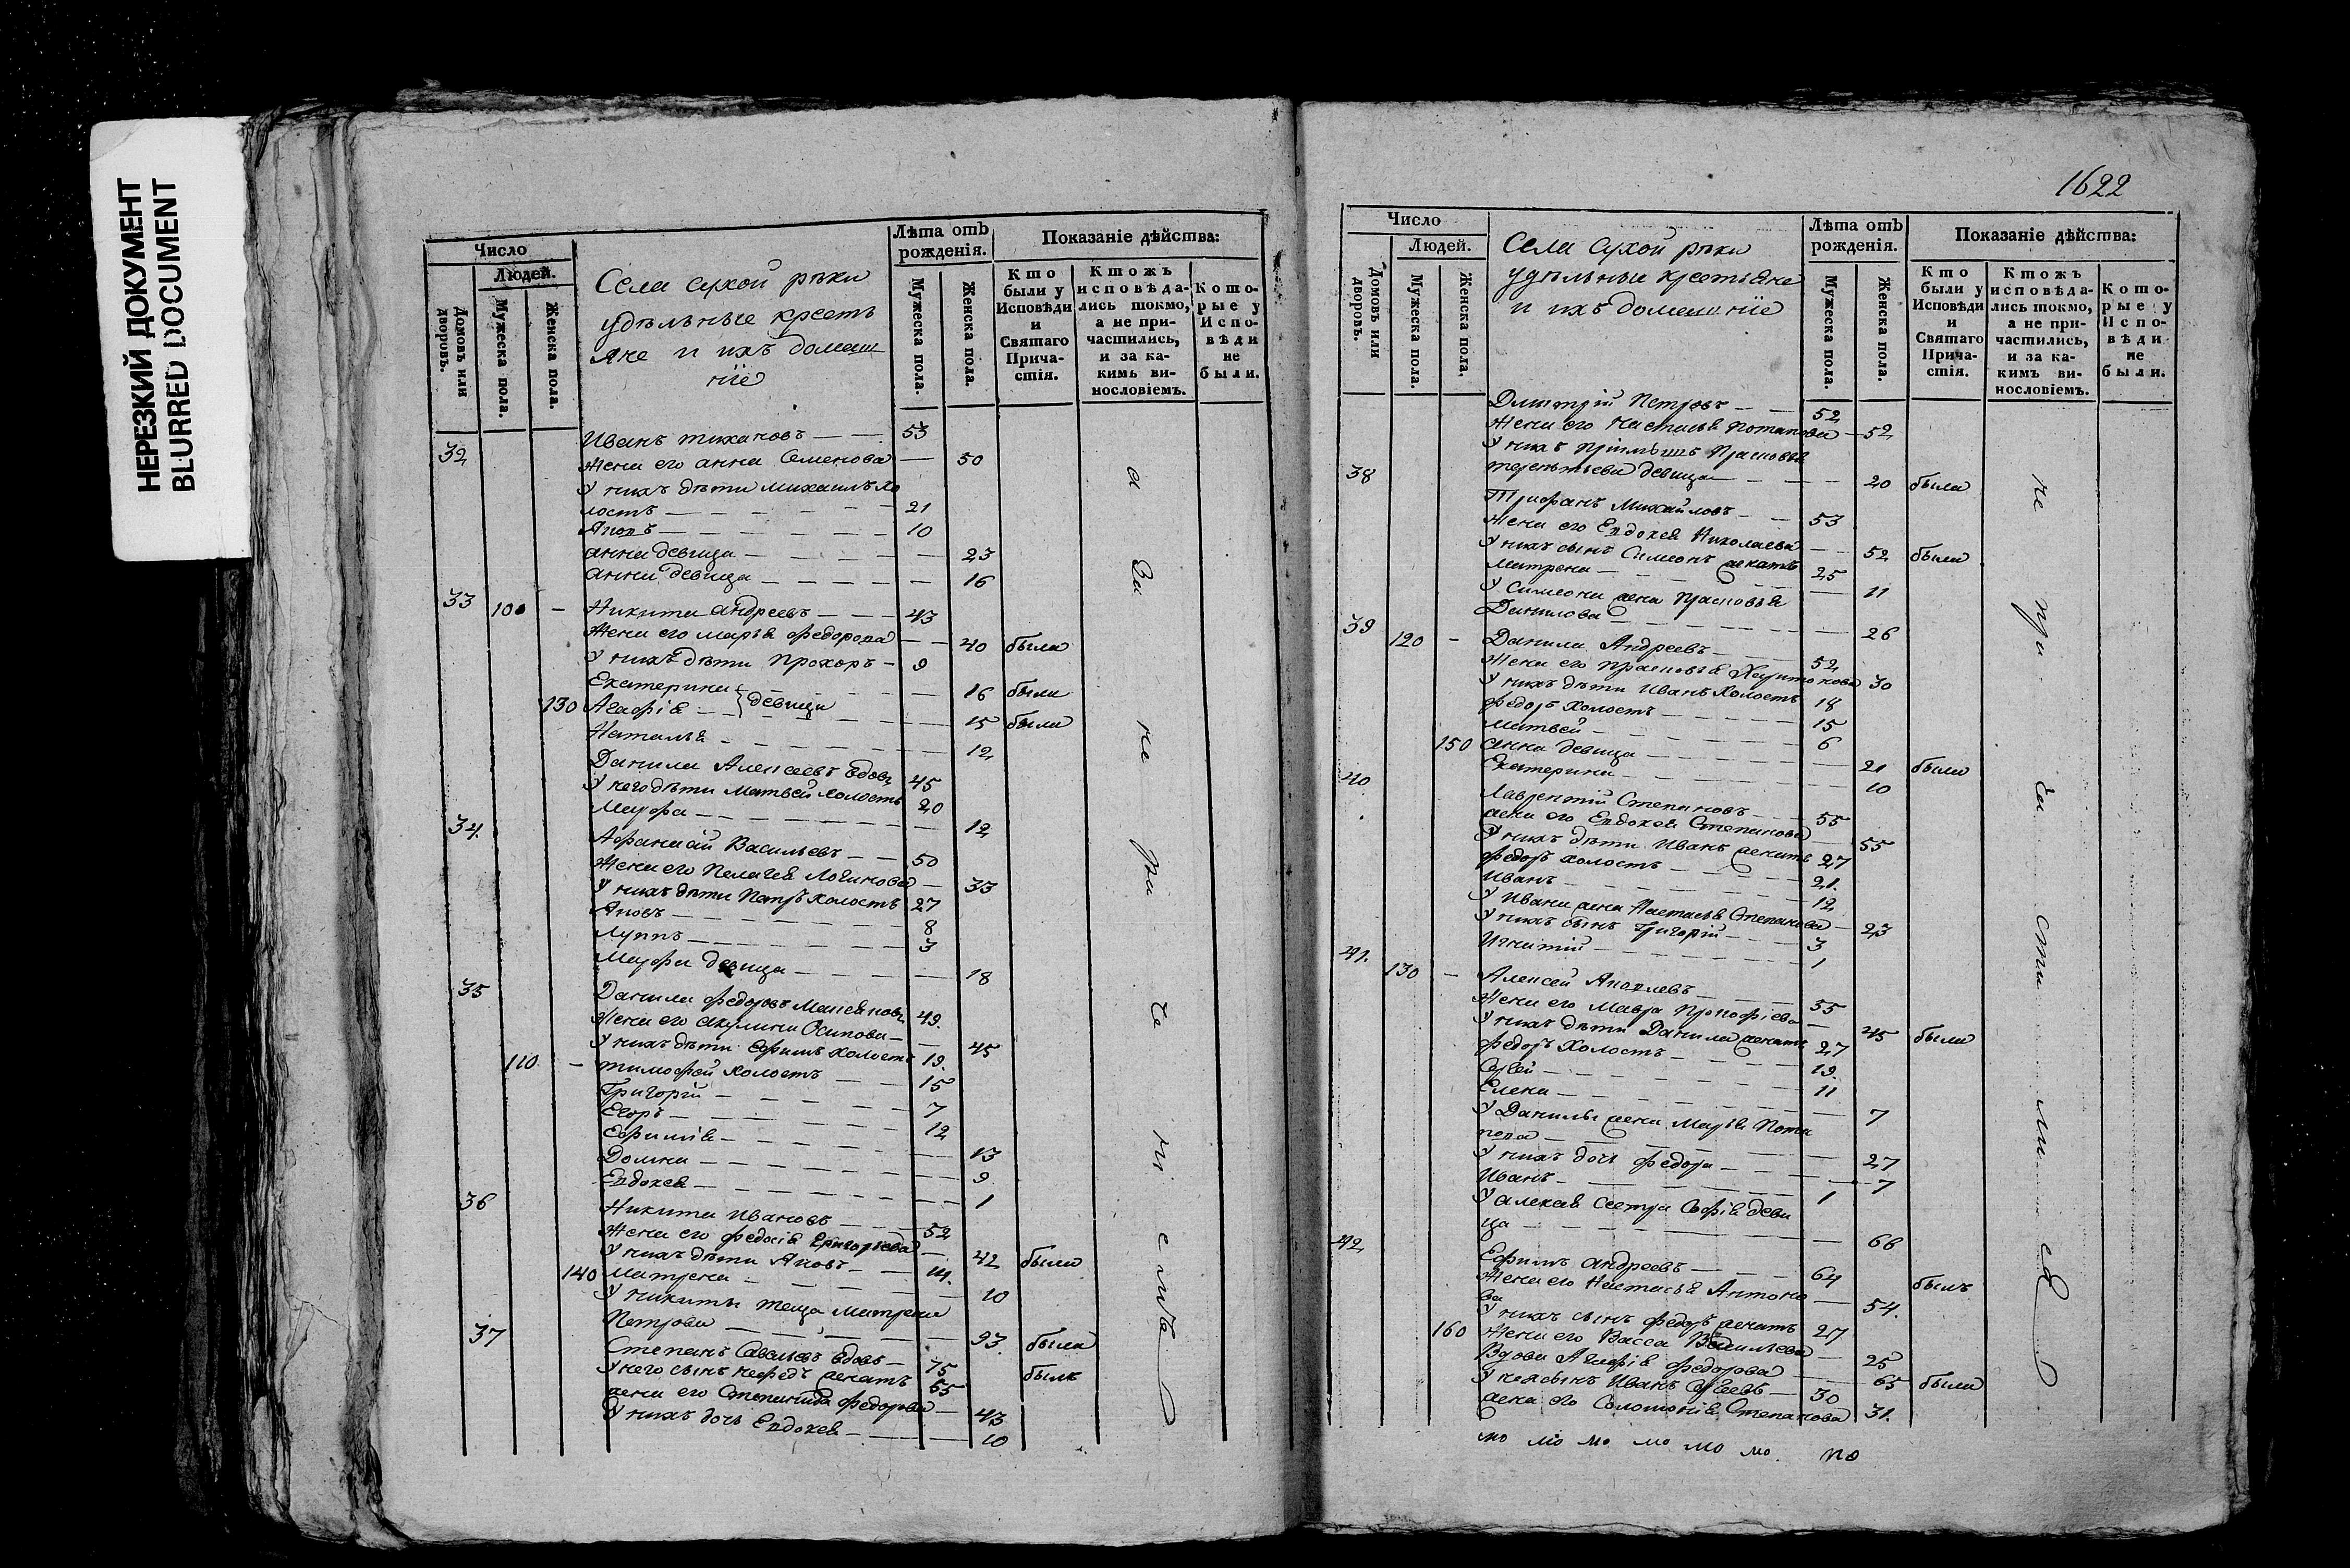 НЕРЕЗКИЙ ДОКУМЕНТ
BLURRED DOCUMENT
Число
Людей.
Домовъ или дворовъ.
Мужеска пола.
Женска пола.
Села сухой рѣки
удѣльные кресть
яне и ихъ домаш
ніе
Лѣта отъ рожденія.
Мужеска пола.
Женска пола.
Показаніе дѣйства:
Кто были у Исповѣди и Святаго Причастія.
Ктожъ исповѣдались токмо, а не причастились, и за какимъ винословіемъ.
Которые у Исповѣди не были.
32 Иванъ тихановъ 53
Жена его анна Семенова 50
У нихъ дѣти михаилъ хо
лостъ 21
Яковъ 10
анна девица 23
анна девица 16
33 100 Никита андреевъ 43
Жена его марья федорова 40 была
У нихъ дѣти Прохоръ 9
Екатерина 16 были
130 Агафія девицы 15 была
Наталья 12
Данила Алексеевъ вдовъ 45
У него дѣти Матвей холостъ 20
Марфа 12
34 Афанасій Васильевъ 50
Жена его Пелагея Логинова 33
У нихъ дѣти Петръ холостъ 27
Яковъ 8
Луппъ 3
Марфа девица 18
35 Данила федоровъ 49
Жена его акулина Осипова 45
У нихъ дѣти Ефимъ холостъ 19
110 тимофей холостъ 15
Григорій 7
Егоръ 12
Ефимія 13
Домна 9
Евдокея 1
36 Никита ивановъ 52
Жена его федосія Григорьева 42 была
У нихъ дѣти Яковъ 14
140 матрена 10
У никиты теща матрена
Петрова 93 была
37 Степанъ Савельевъ вдовъ 75 былъ
У него сынъ нефедъ женатъ 55
жена его Степанида федорова 43
У нихъ дочь Евдокея 10
за не при че ні емъ
1622
Число
Людей.
Домовъ или дворовъ.
Мужеска пола.
Женска пола.
Села сухой рѣки
удѣльные крестьяне
и ихъ домашніе
Лѣта отъ рожденія.
Мужеска пола.
Женска пола.
Показаніе дѣйства:
Кто были у Исповѣди и Святаго Причастія.
Ктожъ исповѣдались токмо, а не причастились, и за какимъ винословіемъ.
Которые у Исповѣди не были.
Дмитрій Петровъ 52
Жена его Настасья Потапова 52
У нихъ пріимышъ Прасковья
38 терентьева девица 20 была
Трифанъ Михайловъ 53
Жена его Евдокея Николаева 52 была
У нихъ сынъ Симеонъ женатъ 25
Матрена 11
У Симеона жена Прасковья
Данилова 26
39 120 Данила Андреевъ 52
Жена его прасковья Харитонова 30
У нихъ дѣти Иванъ холостъ 18
федоръ холостъ 15
Матвей 6
150 анна девица 21 была
Екатерина 10
40 Лаврентій Степановъ 55
жена его Евдокея Степанова 55
У нихъ дѣти Иванъ женатъ 27
федоръ холостъ 21
Иванъ 12
У Ивана жена Настасья Степанова 23
У нихъ сынъ Григорій 3
Игнатій 1
41 130 Алексей Яковлевъ 55
Жена его Мавра Прокофіева 45 была
У нихъ дѣти Данила женатъ 27
федоръ холостъ 19
Сергей 11
Елена 7
У Данилы жена Марья Пота
пова 27
У нихъ дочь федора 7
Иванъ 1
У алексея сестра Софія деви
ца 66
42 Ефимъ андреевъ 64 былъ
Жена его Настасья Антоно
ва 54
У нихъ сынъ федоръ женатъ 27
160 Жена его Васса Васильева 25
Вдова Агафія федорова 65 была
У нея сынъ Иванъ Сергеевъ 30
жена его Соломонія Степанова 31
не при ча сти ли ся
мо мо мо мо мо мо по